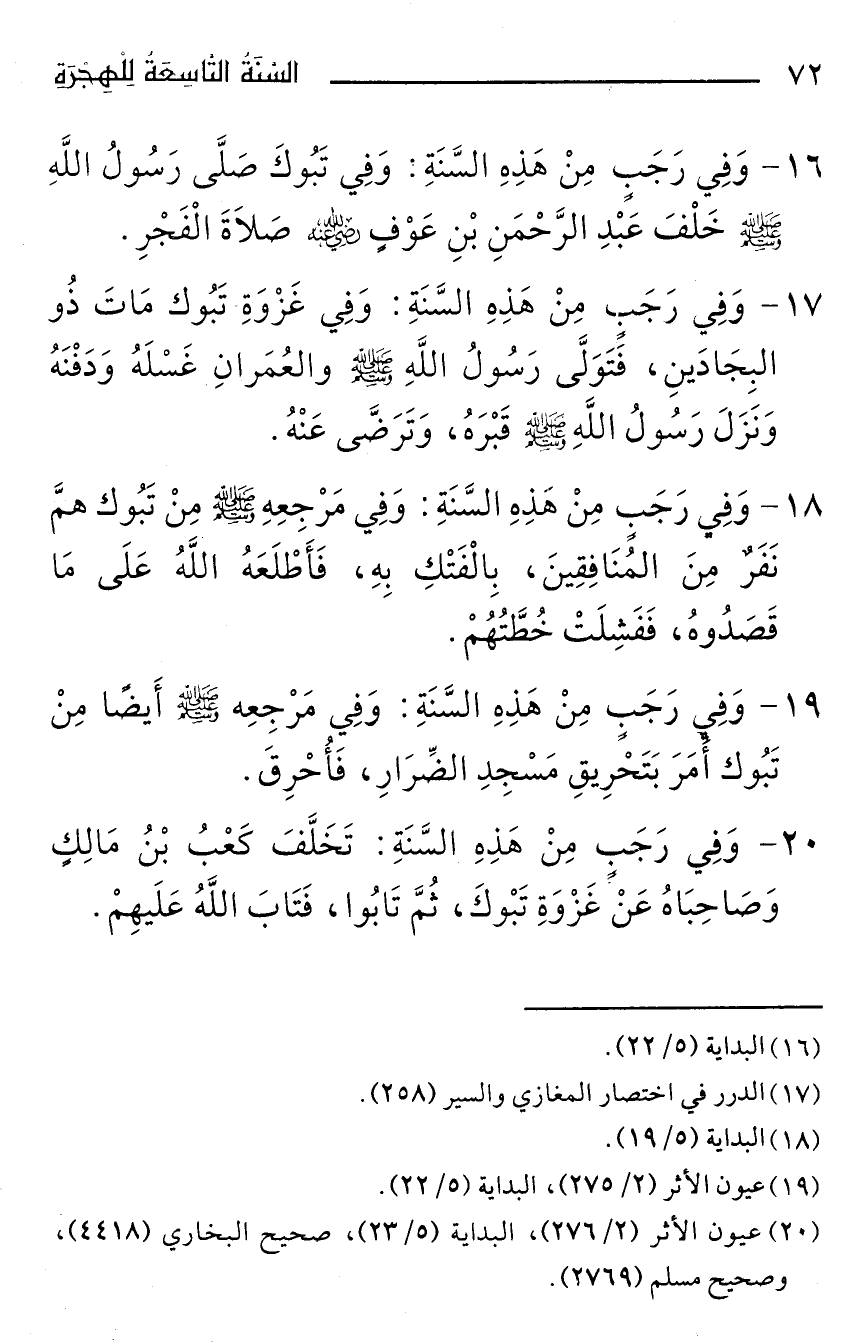 ٧٢ السْنَةُ التَّاسِعَةُ لِلْهِجْرَةِ
١٦- وَفِي رَجَبٍ مِنْ هَذِهِ السَّنَةِ: وَفِي تَبُوكَ صَلَّى رَسُولُ اللَّهِ
ﷺ خَلْفَ عَبْدِ الرَّحْمَنِ بْنِ عَوْفٍ رضي الله عنه صَلاَةَ الْفَجْرِ.
١٧- وَفِي رَجَبٍ مِنْ هَذِهِ السَّنَةِ: وَفِي غَزْوَةِ تَبُوك مَاتَ ذُو
البِجَادَينِ، فَتَوَلَّى رَسُولُ اللَّهِ ﷺ والعُمَرانِ غَسْلَهُ وَدَفْنَهُ
وَنَزَلَ رَسُولُ اللَّهِ ﷺ قَبْرَهُ، وَتَرَضَّى عَنْهُ.
١٨- وَفِي رَجَبٍ مِنْ هَذِهِ السَّنَةِ: وَفِي مَرْجِعِهِ ﷺ مِنْ تَبُوك همَّ
نَفَرٌ مِنَ المُنَافِقِينَ، بِالْفَتْكِ بِهِ، فَأَطْلَعَهُ اللَّهُ عَلَى مَا
قَصَدُوهُ، فَفَشِلَتْ خُطَّتُهُمْ.
١٩- وَفِي رَجَبٍ مِنْ هَذِهِ السَّنَةِ: وَفِي مَرْجِعِه ﷺ أَيضًا مِنْ
تَبُوك أُمَرَ بَتَحْرِيقِ مَسْجِدِ الضِّرَارِ، فَأُحْرِقَ.
٢٠- وَفِي رَجَبٍ مِنْ هَذِهِ السَّنَةِ: تَخَلَّفَ كَعْبُ بْنُ مَالِكٍ
وَصَاحِبَاهُ عَنْ غَزْوَةِ تَبْوكَ، ثُمَّ تَابُوا، فَتَابَ اللَّهُ عَلَيهِمْ.
(١٦) البداية (٥/ ٢٢).
(١٧) الدرر في اختصار المغازي والسير (٢٥٨).
(١٨) البداية (٥/ ١٩).
(١٩) عيون الأثر (٢/ ٢٧٥)، البداية (٥/ ٢٢).
(٢٠) عيون الأثر (٢/ ٢٧٦)، البداية (٥/ ٢٣)، صحيح البخاري (٤٤١٨)،
وصحيح مسلم (٢٧٦٩).